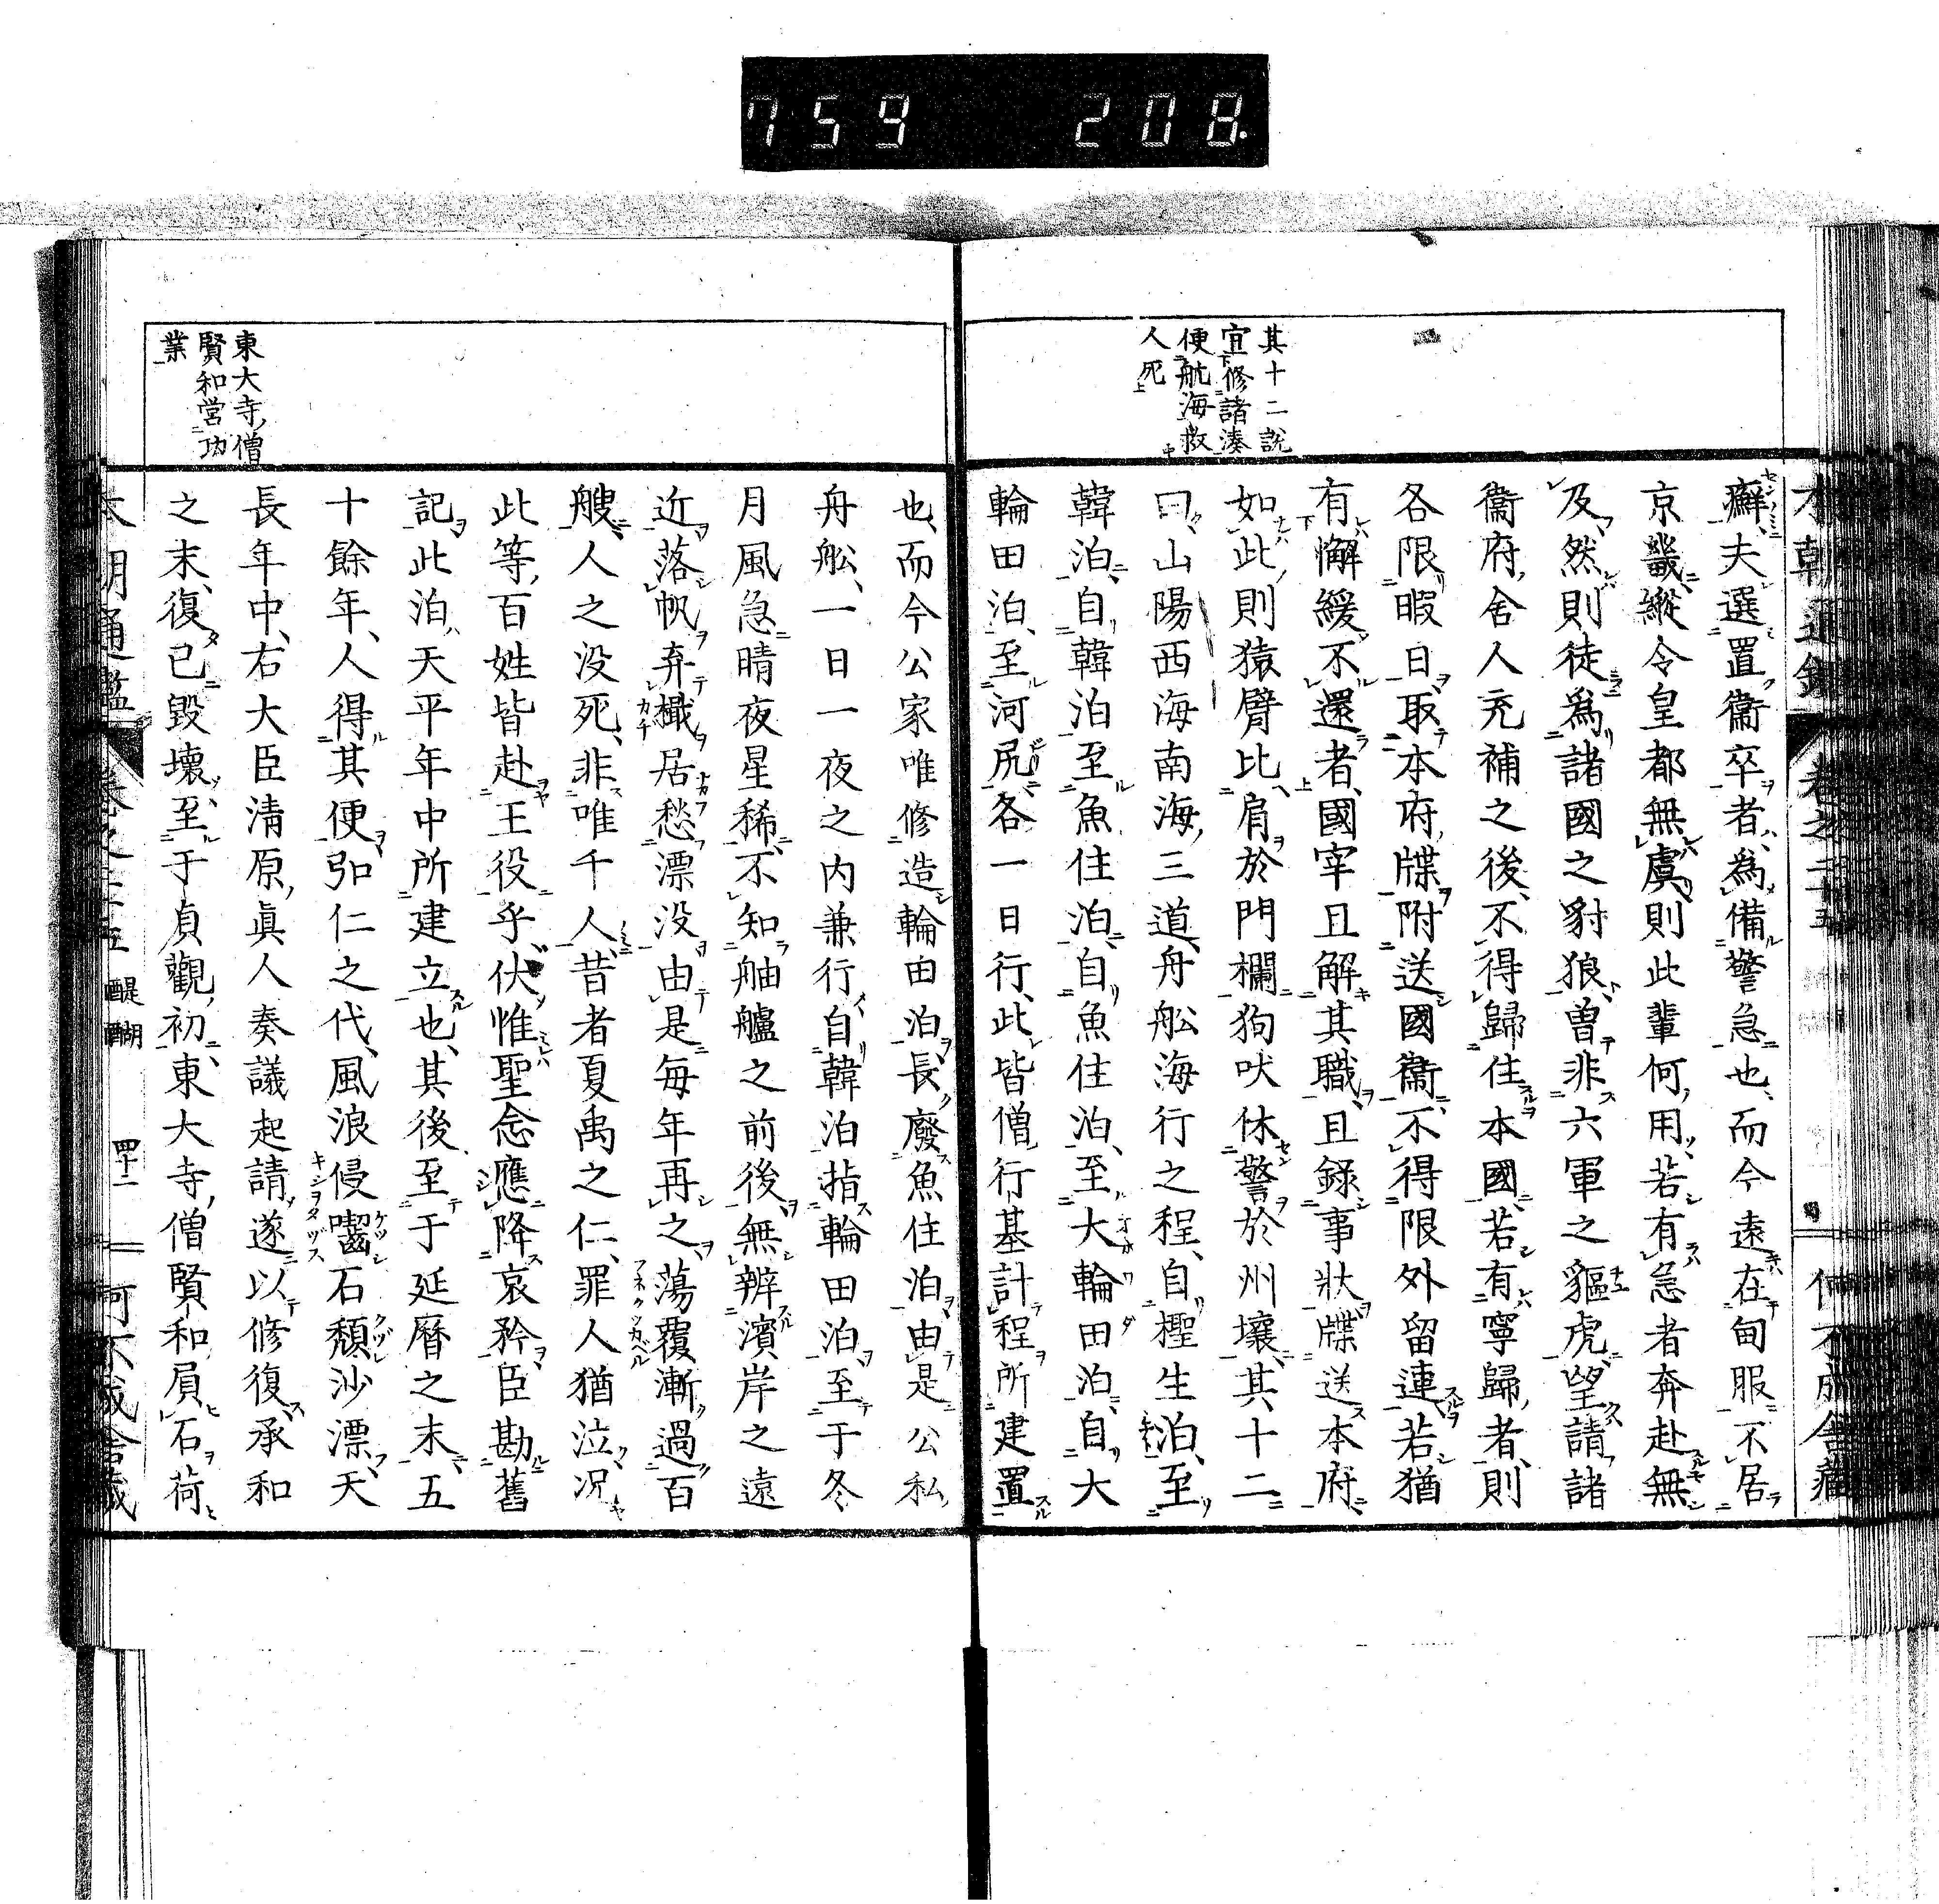 759 208
其十二說
宜修諸湊
便航海救
人死
癬、夫選置衞卒者、爲備警急也、而今遠在甸服不居
京畿、縱令皇都無虞、則此輩何用、若有急者奔赴無
及、然則徒爲諸國之豺狼、曽非六軍之貙虎、望請諸
衞府舍人充補之後、不得歸住本國、若有寧歸者、則
各限暇日取本府牒附送國衞、不得限外留連、若猶
有懈緩不還者、國宰且解其職、且錄事狀牒送本府、
如此則猿臂比肩於門欄狗吠休警於州壤、其十二
曰、山陽西海南海三道、舟舩海行之程、自檉生泊、至
韓泊、自韓泊至魚住泊、自魚住泊、至大輪田泊、自大
輪田泊、至河尻、各一日行、此皆僧行基計程所建置
也、而今公家唯修造輪田泊、長廢魚住泊、由是公私
舟舩、一日一夜之内兼行、自韓泊指輪田泊、至于冬
月風急晴夜星稀、不知舳艫之前後、無辨濱岸之遠
近、落帆弃檝居愁漂没、由是每年再之、蕩覆漸過百
艘、人之没死、非唯千人、昔者夏禹之仁、罪人猶泣、况
此等百姓皆赴王役乎、伏惟聖念應降哀矜、臣勘舊
記、此泊天平年中所建立也、其後至于延曆之末、五
十餘年、人得其便、弘仁之代、風浪侵齧石頽沙漂、天
長年中、右大臣清原眞人奏議起請、遂以修復、承和
之末、復已毀壞、至于貞觀初、東大寺僧賢和、屓石荷
東大寺僧
賢和営功
業
本朝通鑑 卷之二十五 醍醐 四十二